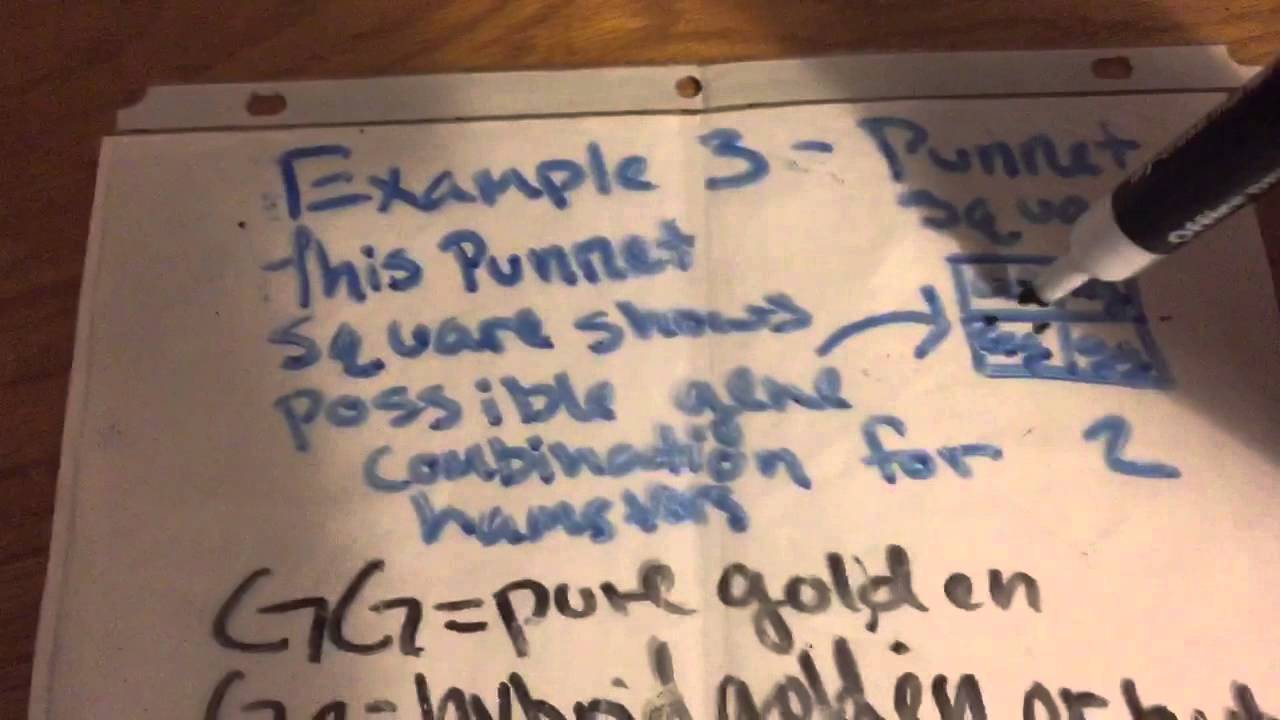 Example 3 - Punnet
this Punnet
square shows
possible gene
combination for 2
hamsters
GG = pure golden
Gg = hybrid golden or